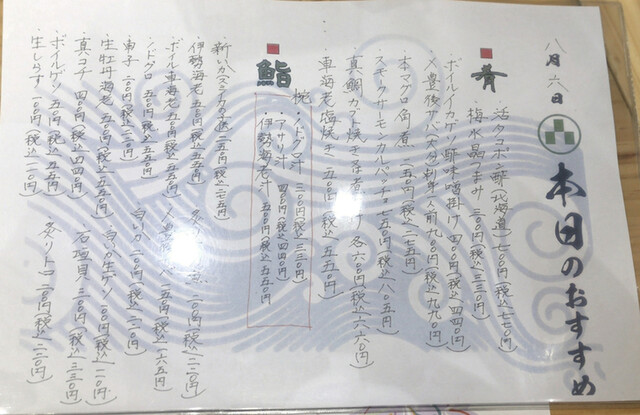 八月六日
本日のおすすめ
肴
・活タコポン酢(北海道)七〇〇円(税込)七七〇円)
・梅水晶つまみ 三〇〇円(税込)三三〇円)
・ボイルイカゲソ酢味噌掛け 四〇〇円(税込)四四〇円)
・〆豊後サバ大分刺身一人前九〇〇円(税込)九九〇円)
・本マグロ角煮 二五〇円(税込)二七五円)
・スモークサーモンカルパッチョ 七五〇円(税込)八二五円)
・真鯛カブト焼き又は煮付け各六〇〇円(税込)六六〇円)
・車海老塩焼き 五〇〇円(税込)五五〇円)
鮨
椀
・ノドグロ汁 三〇〇円(税込)三三〇円
・アサリ汁 四〇〇円(税込)四四〇円
・伊勢海老汁 五〇〇円(税込)五五〇円
・新いか(スミイカの子供)二五〇円(税込)二七五円
・伊勢海老 五〇〇円(税込)五五〇円)
・ボイル車海老 五〇〇円(税込)五五〇円)
・ノドグロ 五〇〇円(税込)五五〇円)
・車子 二〇〇円(税込)二二〇円)
・生牡丹海老 五〇〇円(税込)五五〇円)
・真コチ 四〇〇円(税込)四四〇円)
・ボイルゲソ 五〇円(税込)五五円)
・生しらす 二〇〇円(税込)二二〇円)
二〇〇円(税込)二二〇円)
一五〇円(税込)一六五円)
・白いか 二〇〇円(税込)二二〇円)
・白いか生ゲソ 一〇〇円(税込)一一〇円)
・石垣貝 三〇〇円(税込)三三〇円)
・炙りトロ 二〇〇円(税込)二二〇円)